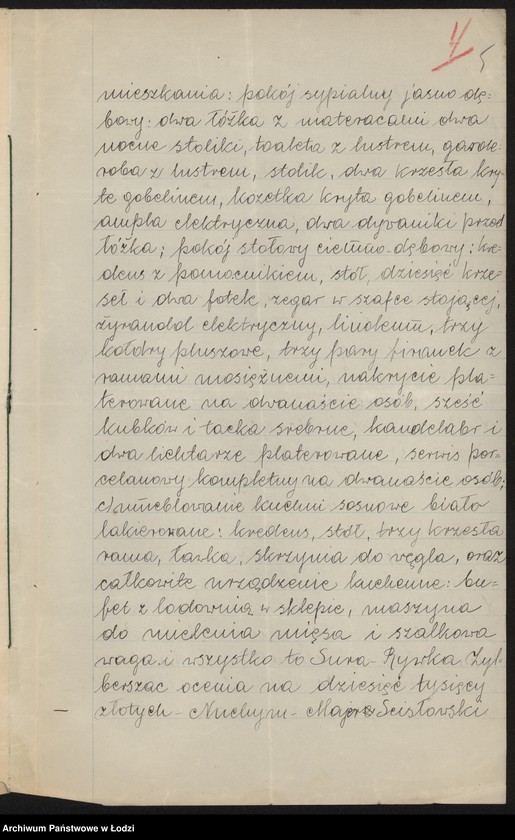 4 5
mieszkania: pokój sypialny jasno dę=
bowy: dwa łóżka z materacami dwa
nocne stoliki, toaleta z lustrem, garde-
roba z lustrem, stolik, dwa krzesła kry-
te gobelinem, kozetka kryta gobelinem,
ampla elektryczna, dwa dywaniki przed
łóżka; pokój stołowy ciemno-dębowy: kre-
dens z pomocnikiem, stół, dziesięć krze-
seł i dwa fotek, zegar w szafce stojącej,
żyrandol elektryczny, linoleum, trzy
kołdry pluszowe, trzy pary firanek z
ramami mosiężnemi, nakrycie pla=
terowane na dwanaście osób, sześć
kubków i tacka srebrne, kandelabr i
dwa lichtarze platerowane, serwis por-
celanowy kompletny na dwanaście osób;
c) umeblowanie kuchni sosnowe biało
lakierowane: kredens, stół, trzy krzesła
rama, ławka, skrzynia do węgla, oraz
całkowite urządzenie kuchenne: bu=
fet z lodownią w sklepie, maszyna
do mielenia mięsa i szalkowa
waga i wszystko to Sura-Rywka Zyl-
berszac ocenia na dziesięć tysięcy
złotych - Nuchym - Majer Ścisłowski
Archiwum Państwowe w Łodzi